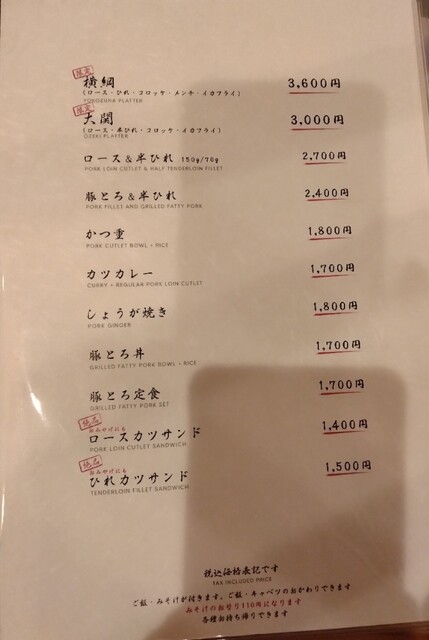 限定
横綱 3,600円
(ロース・ひれ・コロッケ・メンチ・イカフライ)
YOKOZUNA PLATTER
限定
大関 3,000円
(ロース・半ひれ・コロッケ・イカフライ)
OZEKI PLATTER
ロース&半ひれ 150g/70g 2,700円
PORK LOIN CUTLET & HALF TENDERLOIN FILLET
豚とろ&半ひれ 2,400円
PORK FILLET AND GRILLED FATTY PORK
かつ重 1,800円
PORK CUTLET BOWL + RICE
カツカレー 1,700円
CURRY + REGULAR PORK LOIN CUTLET
しょうが焼き 1,800円
PORK GINGER
豚とろ丼 1,700円
GRILLED FATTY PORK BOWL + RICE
豚とろ定食 1,700円
GRILLED FATTY PORK SET
絶品
おみやげにも
ロースカツサンド 1,400円
PORK LOIN CUTLET SANDWICH
絶品
おみやげにも
ひれカツサンド 1,500円
TENDERLOIN FILLET SANDWICH
税込価格表記です
TAX INCLUDED PRICE
ご飯・みそ汁が付きます。ご飯・キャベツのおかわりできます
みそ汁のお替り110円になります
各種お持ち帰りできます